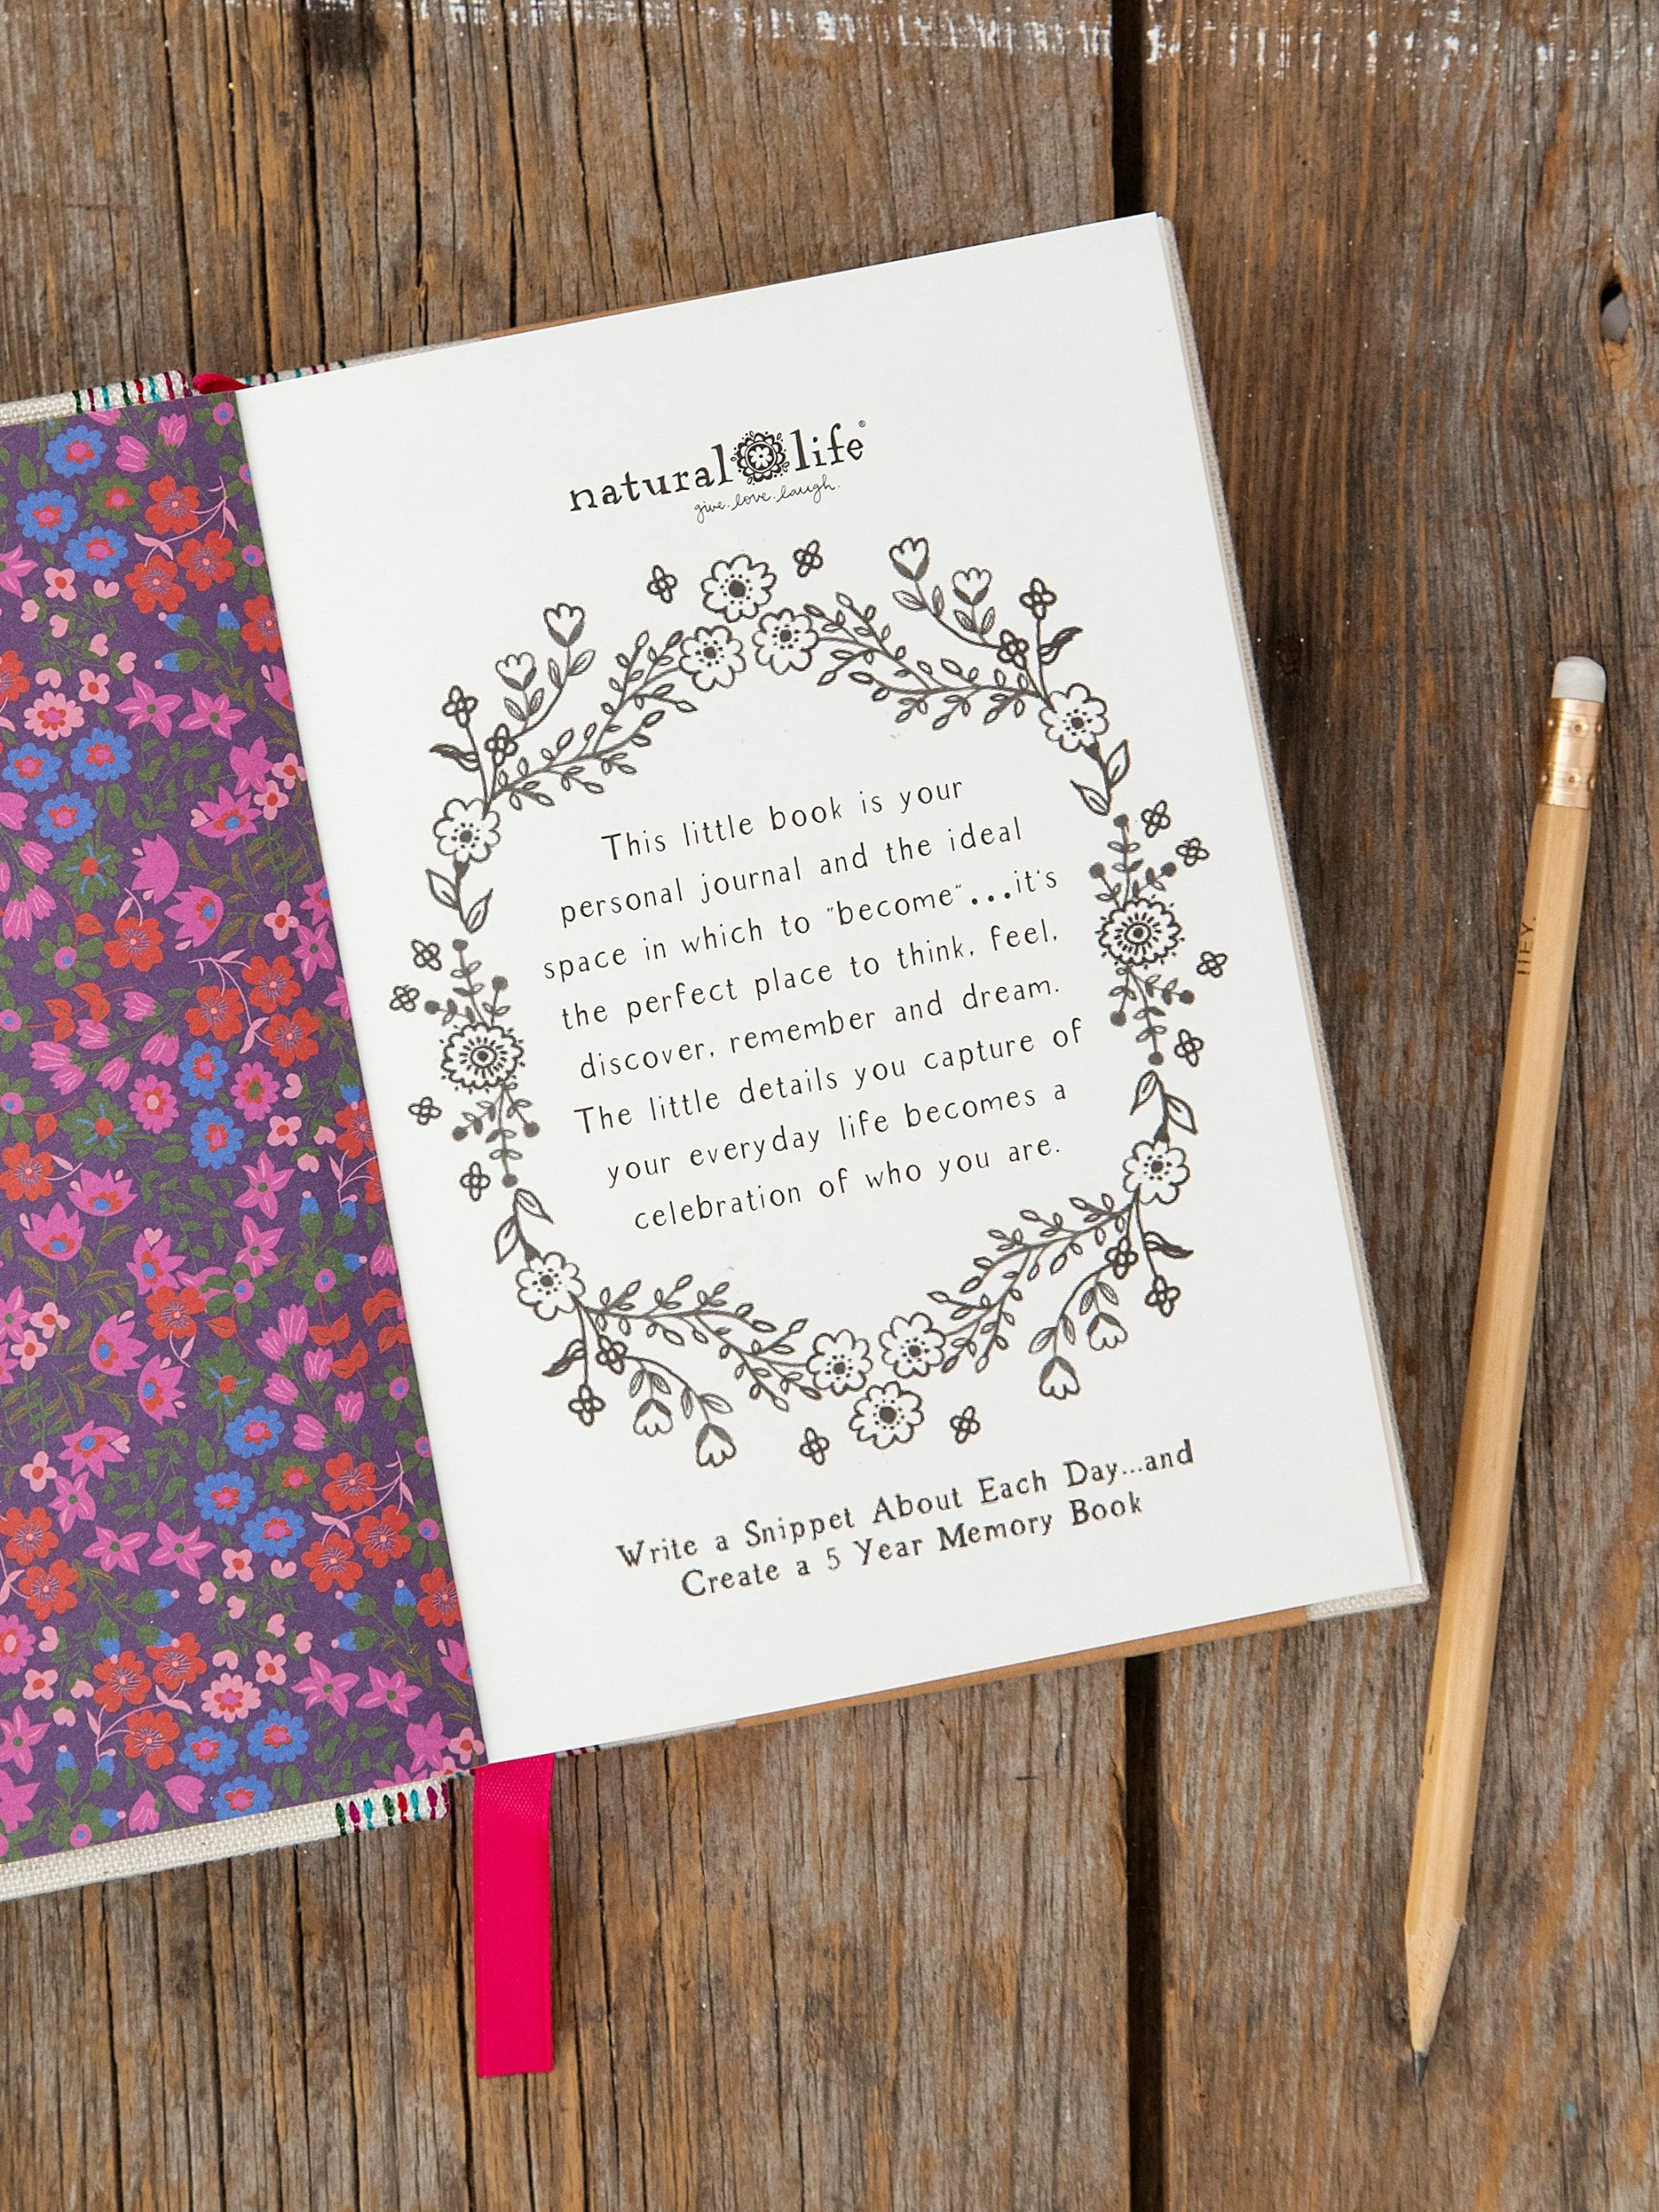 natural life®
give.love.laugh.
This little book is your
personal journal and the ideal
space in which to "become"...it's
the perfect place to think, feel,
discover, remember and dream.
The little details you capture of
your everyday life becomes a
celebration of who you are.
Write a Snippet About Each Day...and
Create a 5 Year Memory Book
HEY.